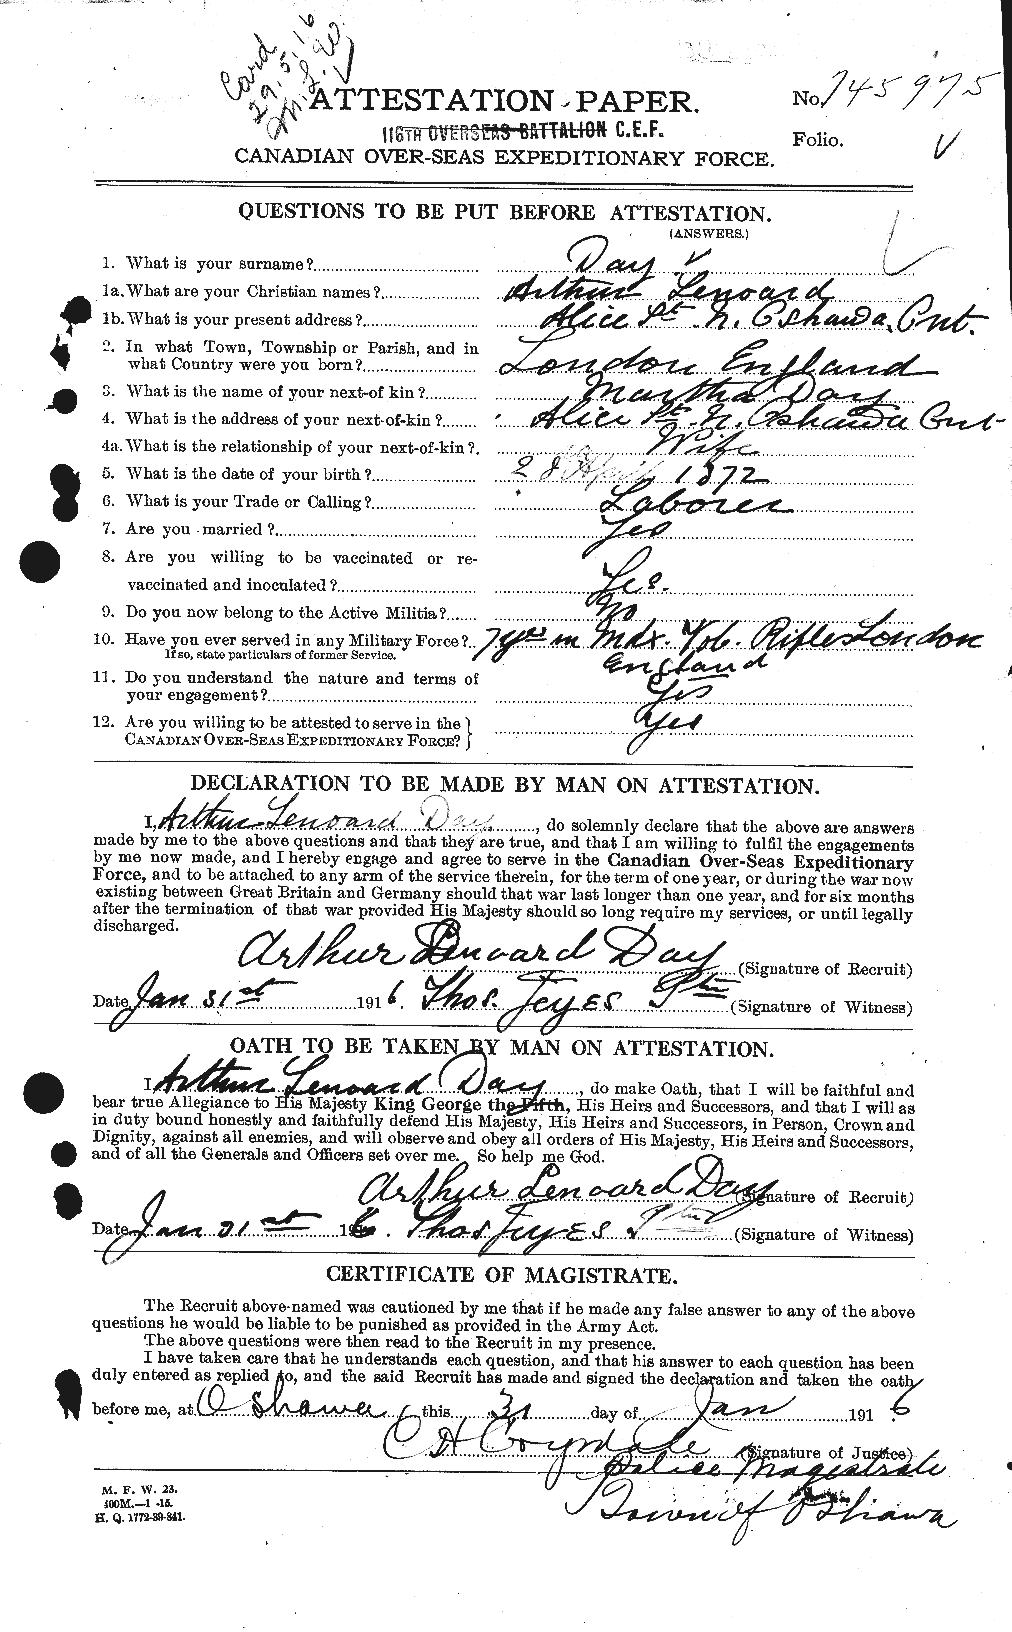 Card
29.5.16
ATTESTATION PAPER.
No. 745975
116TH OVERSEAS BATTALION C.E.F.
Folio.
CANADIAN OVER-SEAS EXPEDITIONARY FORCE.
QUESTIONS TO BE PUT BEFORE ATTESTATION.
(ANSWERS.)
1. What is your surname? Day
1a. What are your Christian names? Arthur Lenoard
1b. What is your present address? Alice St. N. Oshawa, Ont.
2. In what Town, Township or Parish, and in
what Country were you born? London England
3. What is the name of your next-of kin? Martha Day
4. What is the address of your next-of-kin? Alice St. N. Oshawa Ont
4a. What is the relationship of your next-of-kin? Wife
5. What is the date of your birth? 28 April 1872
6. What is your Trade or Calling? Laborer
7. Are you married? Yes
8. Are you willing to be vaccinated or re-
vaccinated and inoculated? Yes.
9. Do you now belong to the Active Militia? No
10. Have you ever served in any Military Force? 7 yrs in Mdx. Vob. Rifles London
If so, state particulars of former Service. England
11. Do you understand the nature and terms of
your engagement? Yes
12. Are you willing to be attested to serve in the
CANADIAN OVER-SEAS EXPEDITIONARY FORCE? Yes
DECLARATION TO BE MADE BY MAN ON ATTESTATION.
I, Arthur Lenoard Day, do solemnly declare that the above are answers
made by me to the above questions and that they are true, and that I am willing to fulfil the engagements
by me now made, and I hereby engage and agree to serve in the Canadian Over-Seas Expeditionary
Force, and to be attached to any arm of the service therein, for the term of one year, or during the war now
existing between Great Britain and Germany should that war last longer than one year, and for six months
after the termination of that war provided His Majesty should so long require my services, or until legally
discharged.
Arthur Lenoard Day (Signature of Recruit)
Date Jan 31st 1916. Thos. Jeyes (Signature of Witness)
OATH TO BE TAKEN BY MAN ON ATTESTATION.
I, Arthur Lenoard Day, do make Oath, that I will be faithful and
bear true Allegiance to His Majesty King George the Fifth, His Heirs and Successors, and that I will as
in duty bound honestly and faithfully defend His Majesty, His Heirs and Successors, in Person, Crown and
Dignity, against all enemies, and will observe and obey all orders of His Majesty, His Heirs and Successors,
and of all the Generals and Officers set over me. So help me God.
Arthur Lenoard Day (Signature of Recruit)
Date Jan 31st 1916. Thos Jeyes (Signature of Witness)
CERTIFICATE OF MAGISTRATE.
The Recruit above-named was cautioned by me that if he made any false answer to any of the above
questions he would be liable to be punished as provided in the Army Act.
The above questions were then read to the Recruit in my presence.
I have taken care that he understands each question, and that his answer to each question has been
duly entered as replied to, and the said Recruit has made and signed the declaration and taken the oath
before me, at Oshawa this 31 day of Jan 1916
(Signature of Justice)
Police Magistrate
M. F. W. 23.
400M.—1-15.
H. Q. 1772-39-841.
Town of Oshawa